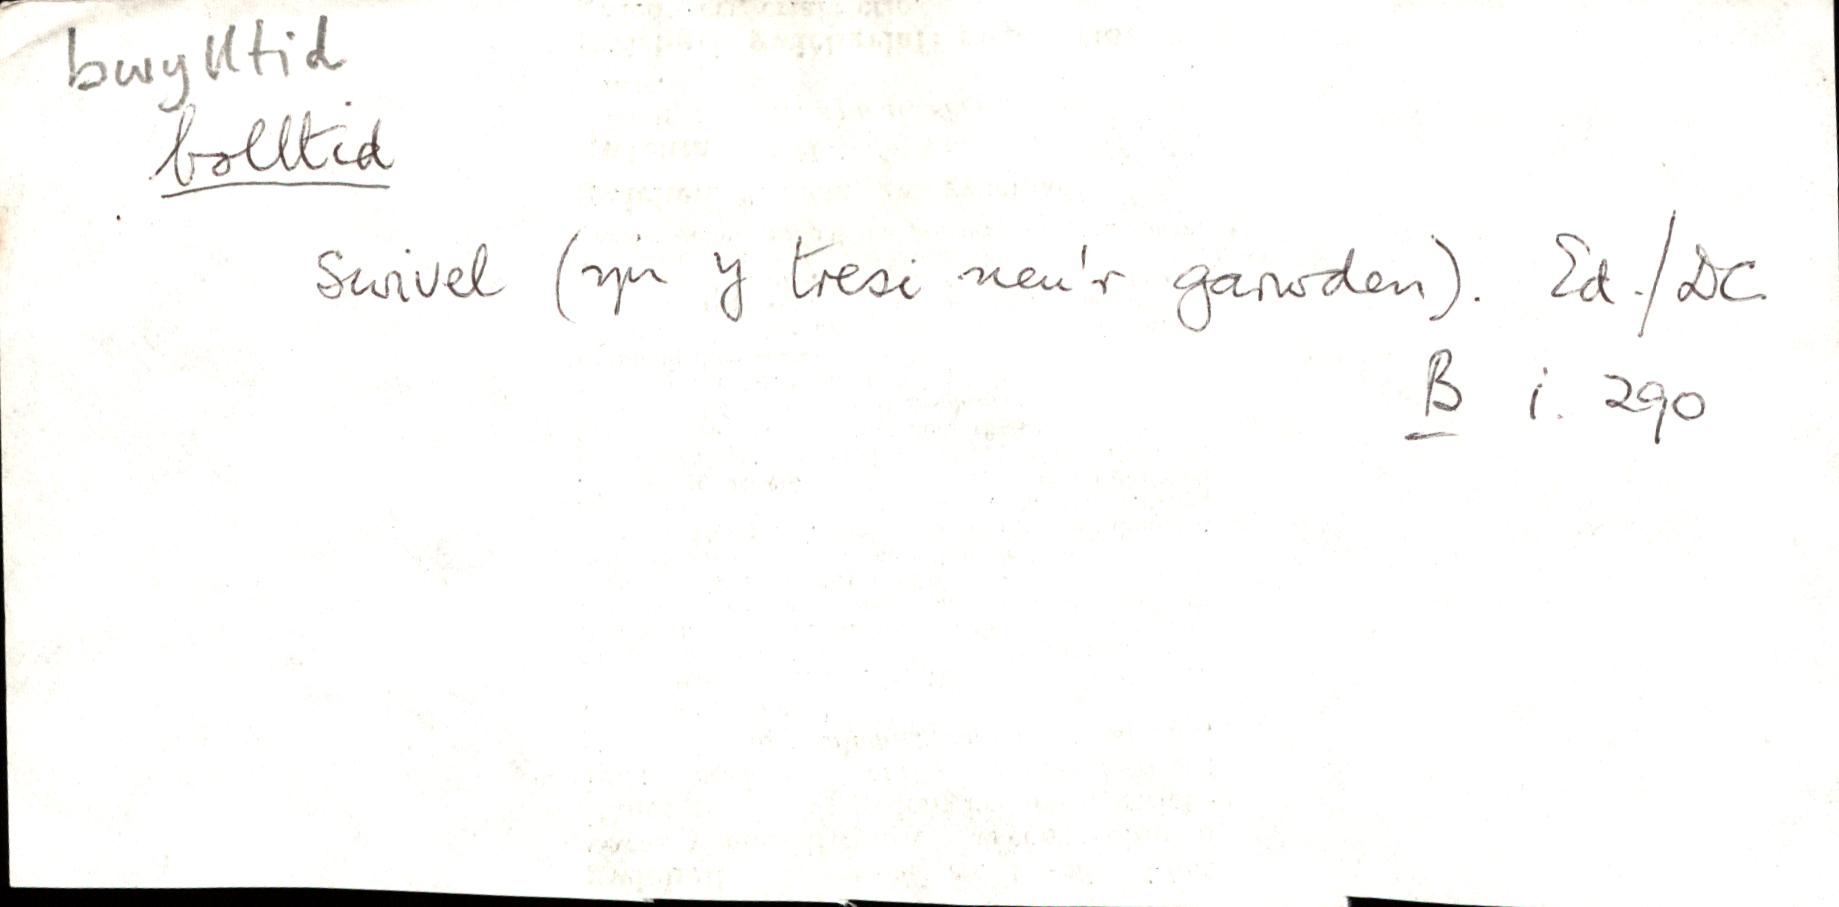 bwylltid
bolltid
Swivel (yn y tresi neu'r garwden). Ed./DC
B i. 290